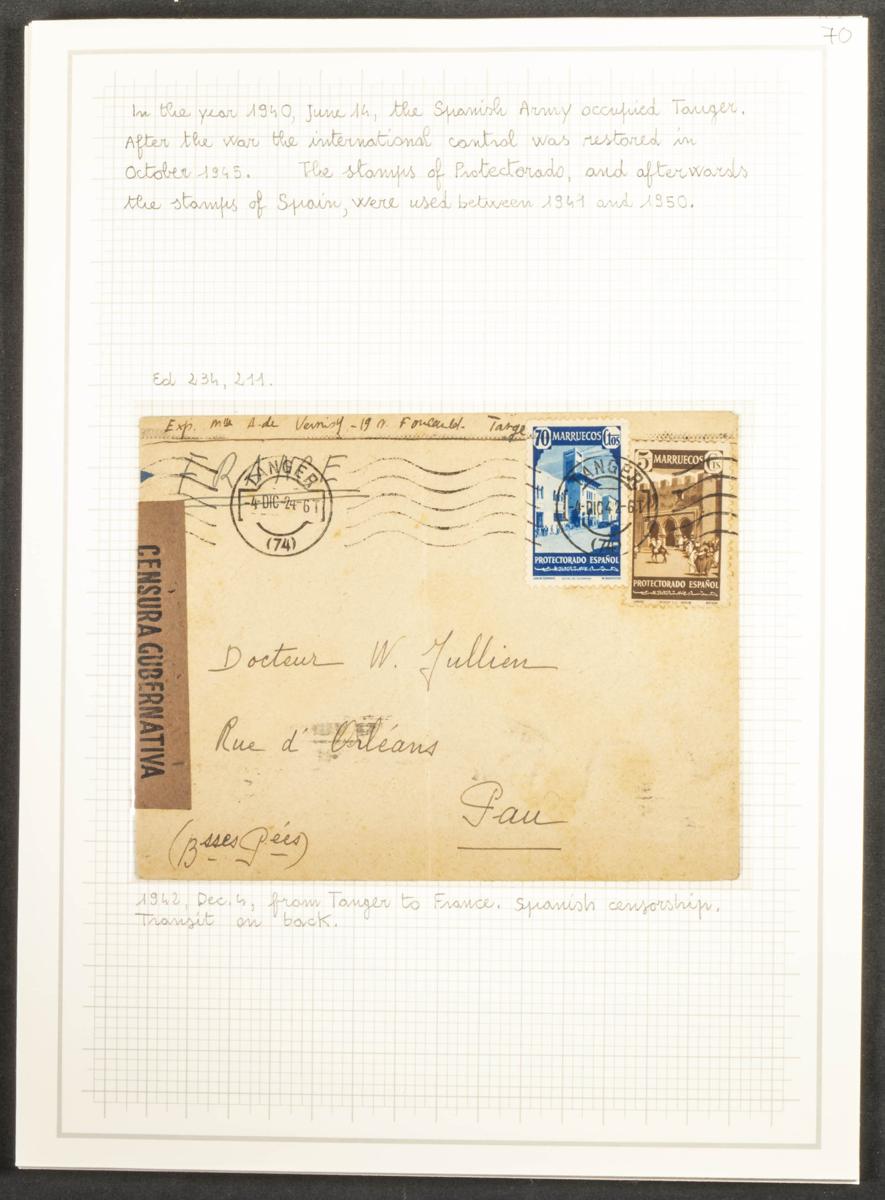 70
In the year 1940, June 14, the Spanish Army occupied Tanger.
After the war the international control was restored in
October 1945. The stamps of Protectorado, and afterwards
the stamps of Spain, were used between 1941 and 1950.
Ed 234, 211.
Exp. Mlle A. de - 19 r. Foucauld - Tange
FRANCE
TANGER
-4-DIC-24-6T
(74)
70 MARRUECOS Ctos
TANGER
-4-DIC42-6T
(74)
PROTECTORADO ESPAÑOL
5 MARRUECOS Cts
PROTECTORADO ESPAÑOL
CENSURA GUBERNATIVA
Docteur W. Jullien
Rue d'Orléans
Pau
(Bsses Pées)
1942, Dec. 4, from Tanger to France. Spanish censorship.
Transit on back.